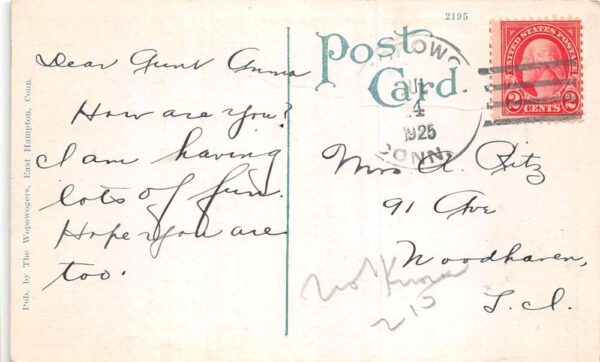 2195
Post
Card
UNITED STATES POSTAGE
2 CENTS 2
4
1925
CONN
Dear Aunt Anna
How are you?
I am having
lots of fun.
Hope you are
too.
Mrs A. Ritz
91 Ave
Woodhaven,
L.I.
Not Known
Pub. by The Wopowogers, East Hampton, Conn.